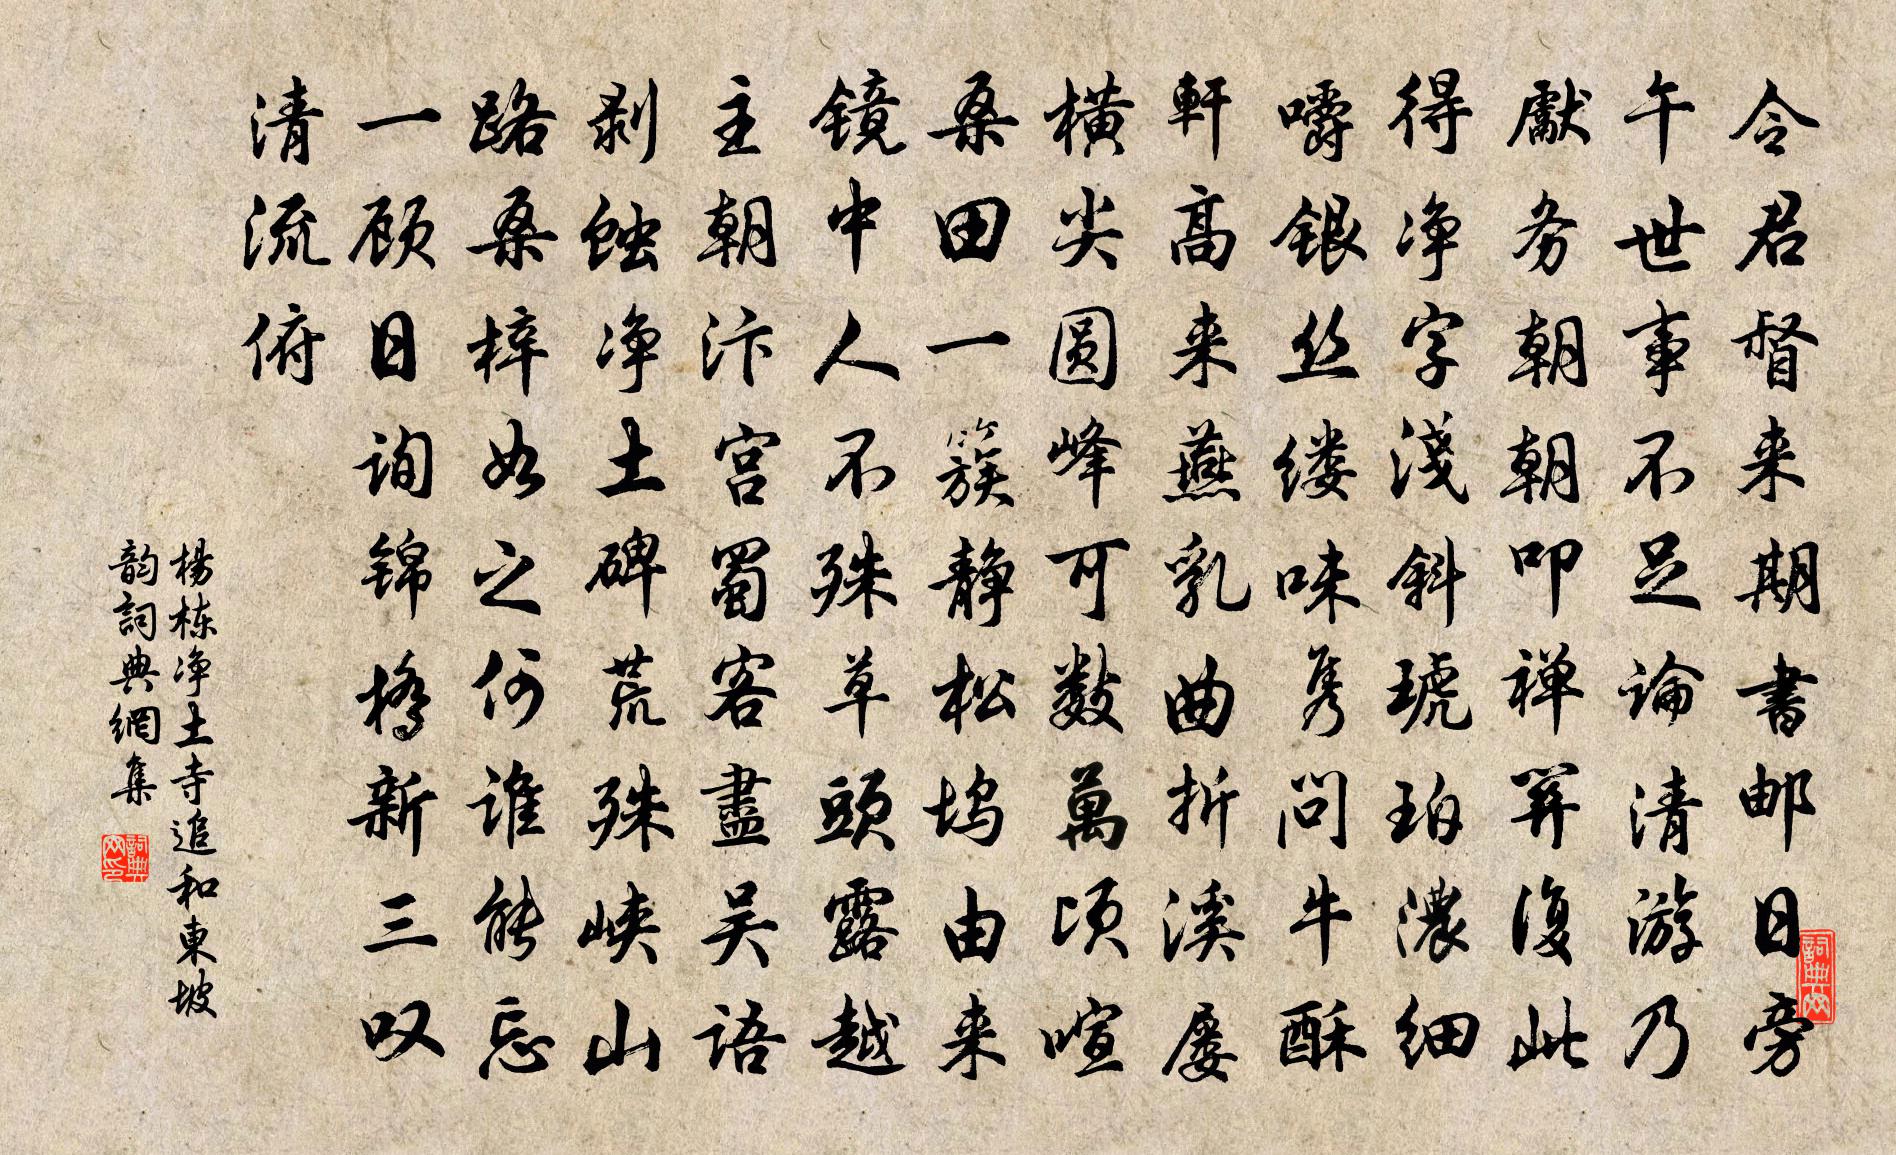 令君督来期書邮日旁
午世事不足論清游乃
獻务朝朝叩禅笄復此
得净字淺斜琥珀濃细
嚼银丝缕味隽问牛酥
軒高来燕乳曲折溪屡
横尖圆峰可数萬顷喧
桑田一簇静松坞由来
镜中人不殊草頭露越
主朝汴宫蜀客盡吴语
剥蚀净土碑荒殊峡山
路桑梓如之何谁能忘
一顾日询锦橋新三叹
清流俯
楊栋净土寺追和東坡
韵詞典網集
詞典网
詞典网印